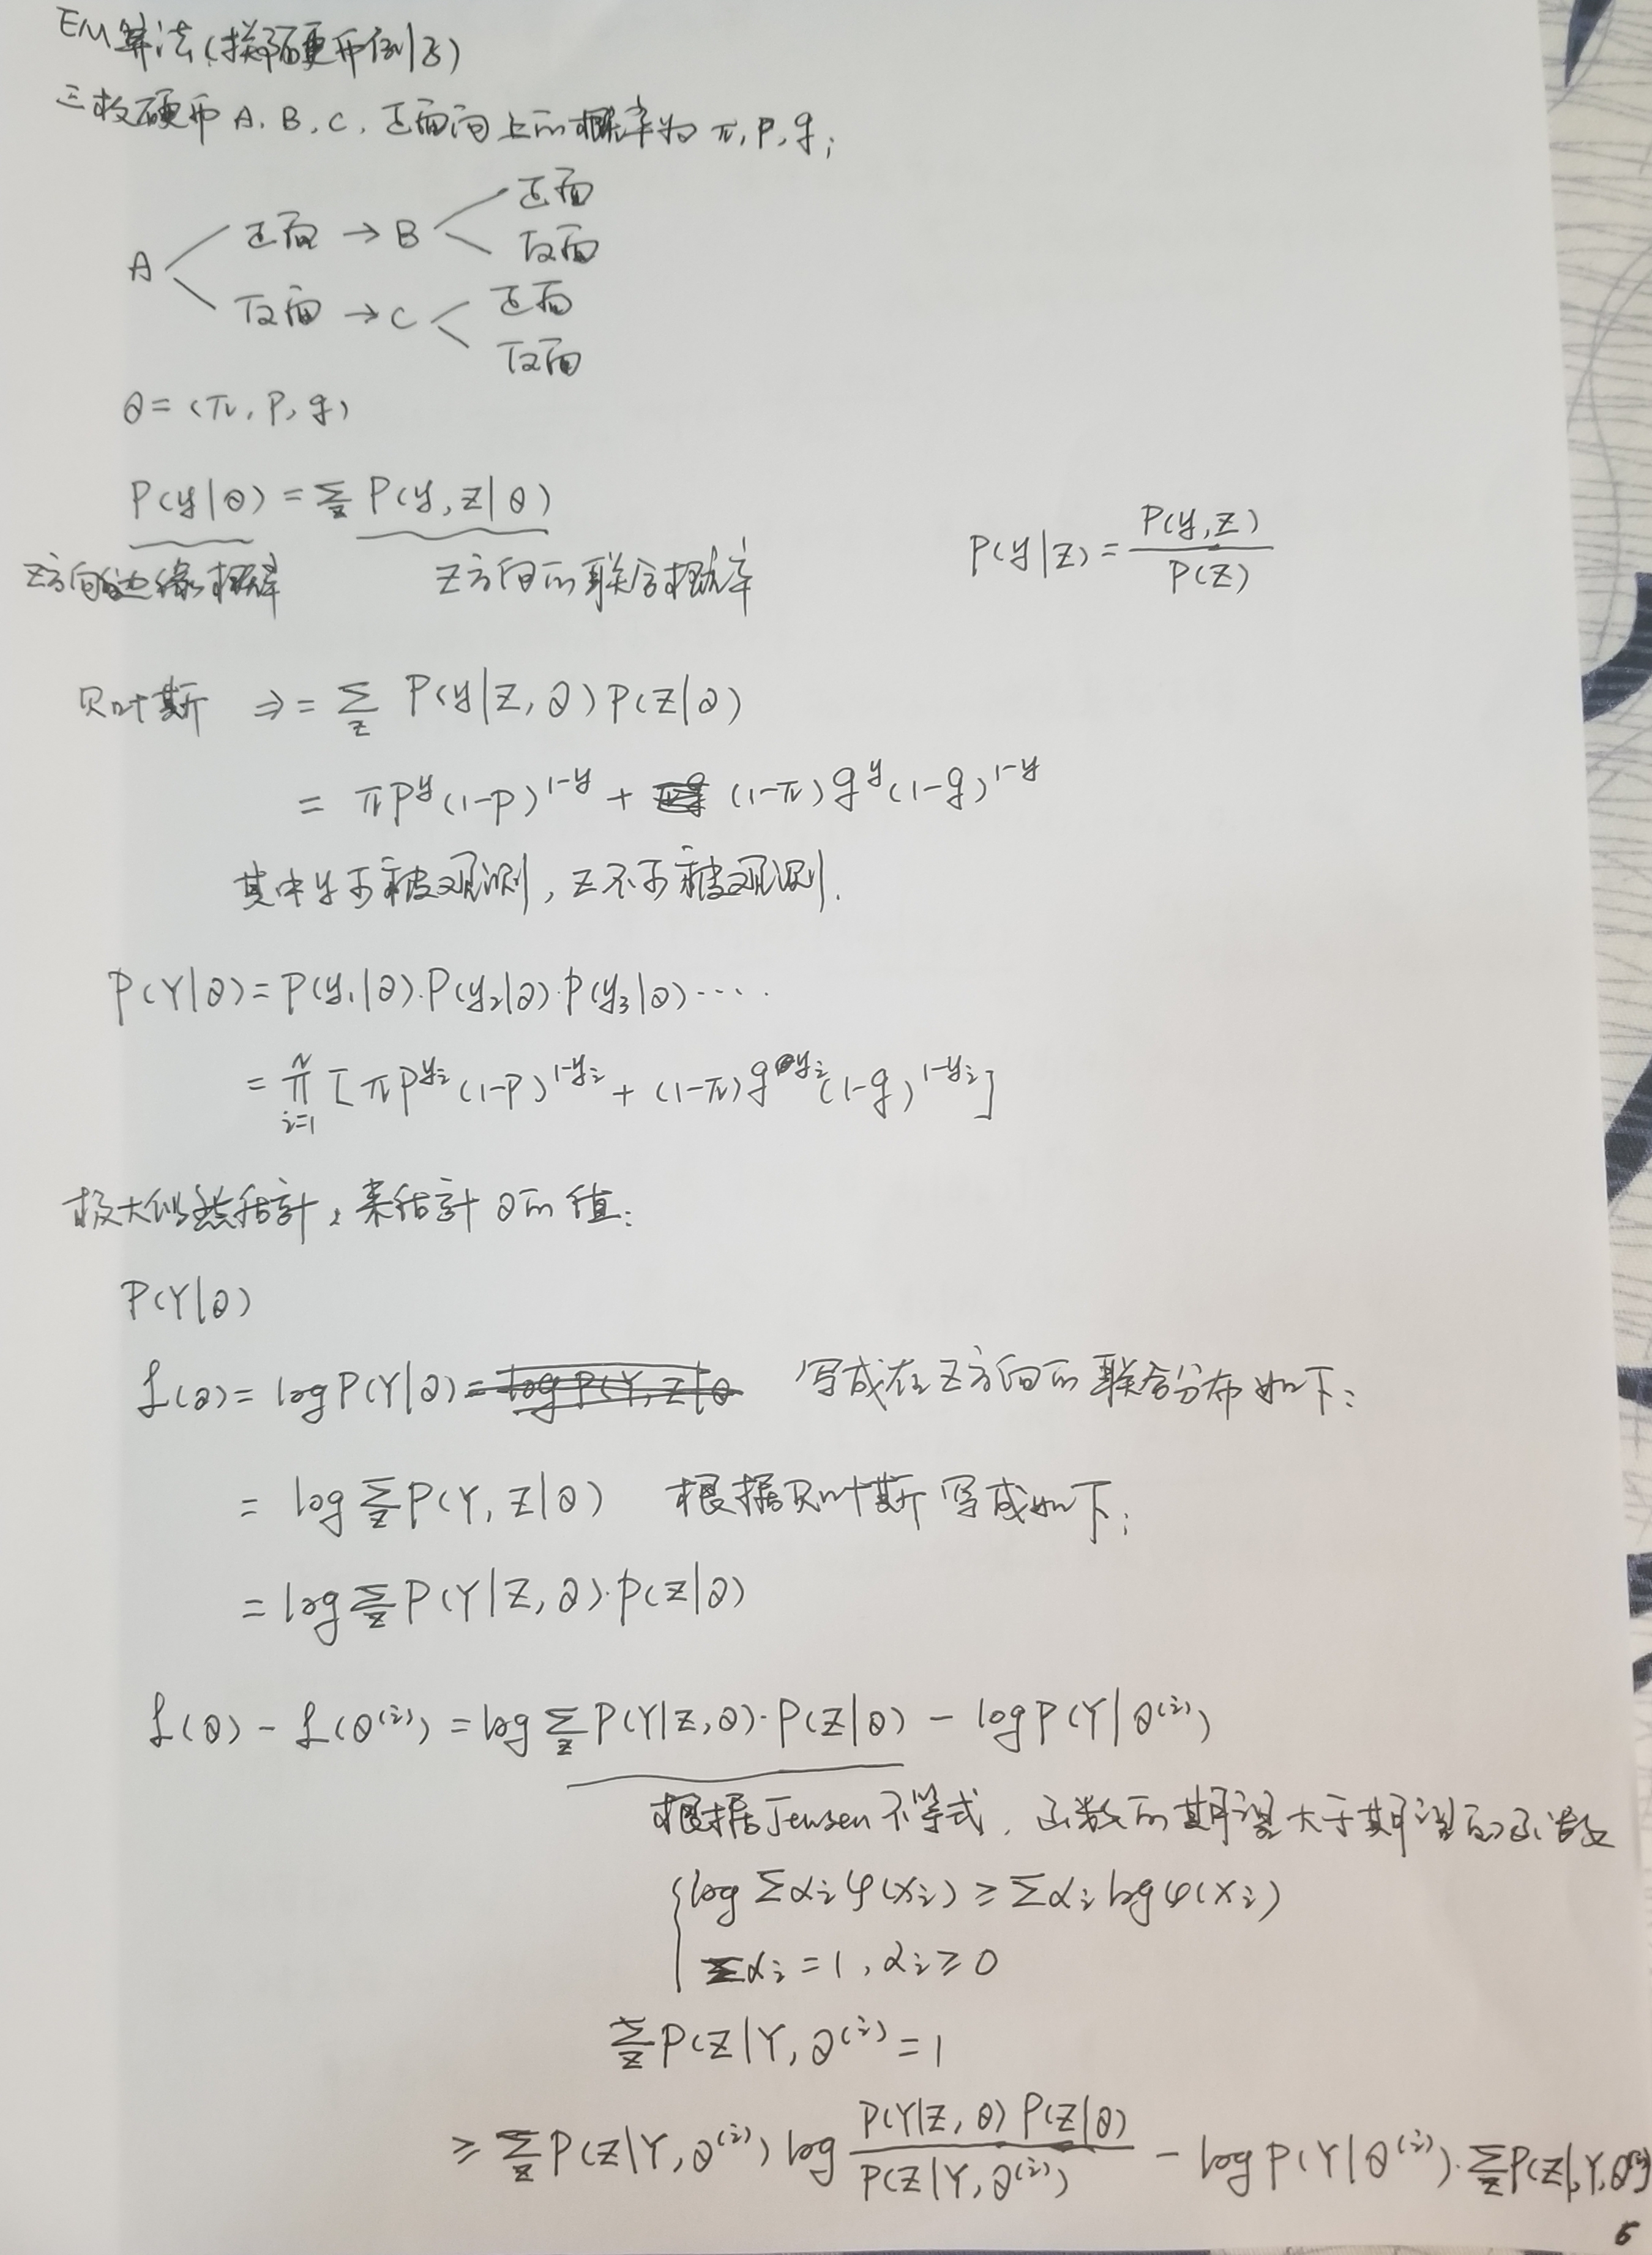 EM算法(掷硬币例子)
三枚硬币 A, B, C, 正面向上的概率为 π, p, q;
正面
正面 → B
反面
A
正面
反面 → C
反面
θ = (π, p, q)
P(y|θ) = Σ_z P(y, z|θ)
P(y|z) = P(y,z) / P(z)
z方向的边缘概率 z方向的联合概率
贝叶斯 ⇒ = Σ_z P(y|z, θ) P(z|θ)
= πp^y (1-p)^{1-y} + (1-π) q^y (1-q)^{1-y}
其中y可被观测, z不可被观测.
P(Y|θ) = P(y₁|θ)·P(y₂|θ)·P(y₃|θ)·····
= ∏_{i=1}^N [πp^{y_i} (1-p)^{1-y_i} + (1-π) q^{y_i} (1-q)^{1-y_i}]
极大似然估計, 来估計 θ的值:
P(Y|θ)
L(θ) = log P(Y|θ) 写成在Z方向的联合分布如下:
= log Σ_z P(Y, Z|θ) 根据贝叶斯写成如下:
= log Σ_z P(Y|Z, θ)·P(Z|θ)
L(θ) - L(θ^{(i)}) = log Σ_z P(Y|Z, θ)·P(Z|θ) - log P(Y|θ^{(i)})
根据Jensen不等式, 函数的期望大于期望的函数
{ log Σα_i φ(x_i) ≥ Σα_i log φ(x_i)
Σα_i = 1, α_i ≥ 0
Σ_z P(Z|Y, θ^{(i)} = 1
≥ Σ_z P(Z|Y, θ^{(i)}) log P(Y|Z, θ) P(Z|θ) / P(Z|Y, θ^{(i)}) - log P(Y|θ^{(i)})·Σ_z P(Z|,Y,θ^{(i)})
5